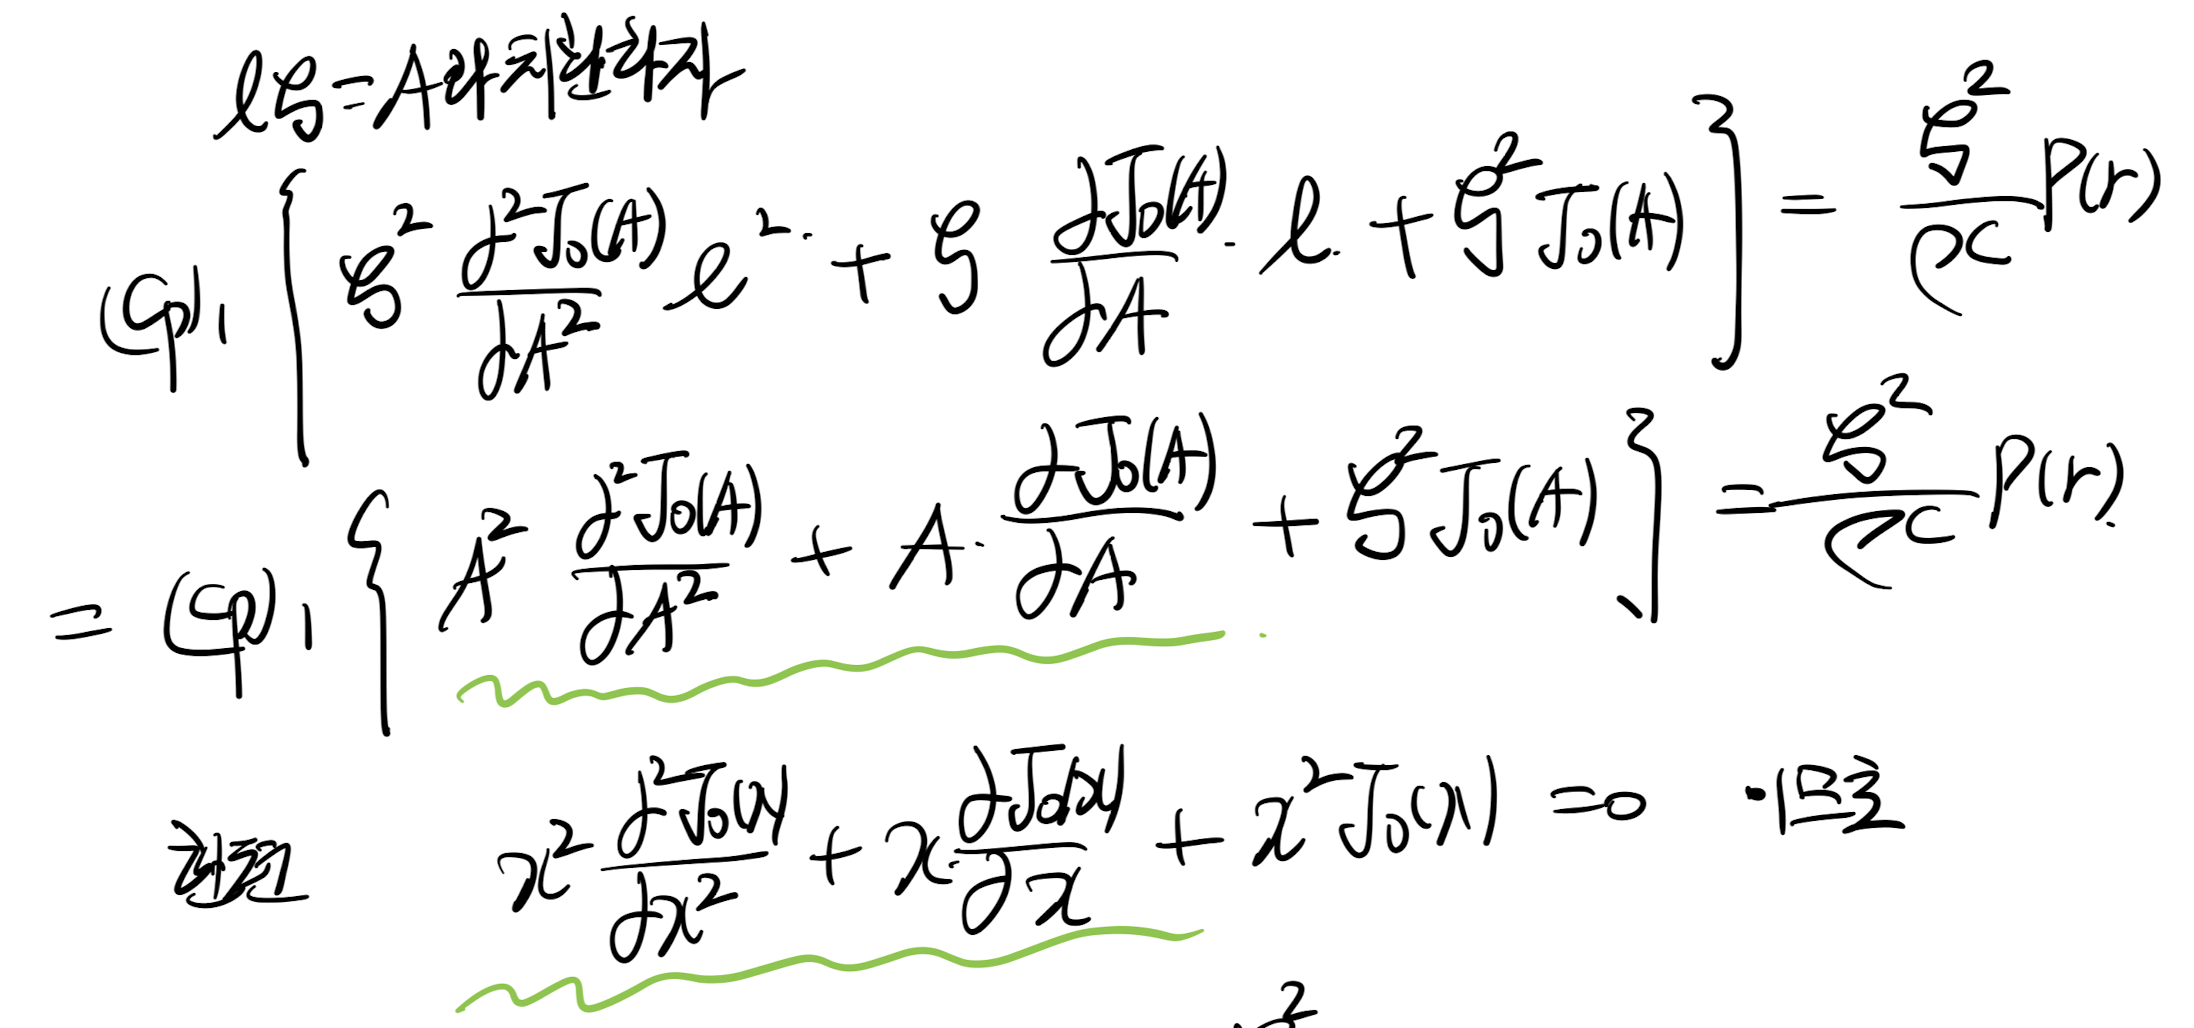 lξ=A라 치환하자
(Cp)₁ { ξ² ∂²J₀(A)/∂A² l² + ξ ∂J₀(A)/∂A · l + ξ² J₀(A) } = ξ²/ρc P(r)
= (Cp)₁ { A² ∂²J₀(A)/∂A² + A · ∂J₀(A)/∂A + ξ² J₀(A) } = ξ²/ρc P(r)
x² ∂²J₀(x)/∂x² + x · ∂J₀(x)/∂x + x² J₀(x) = 0
2